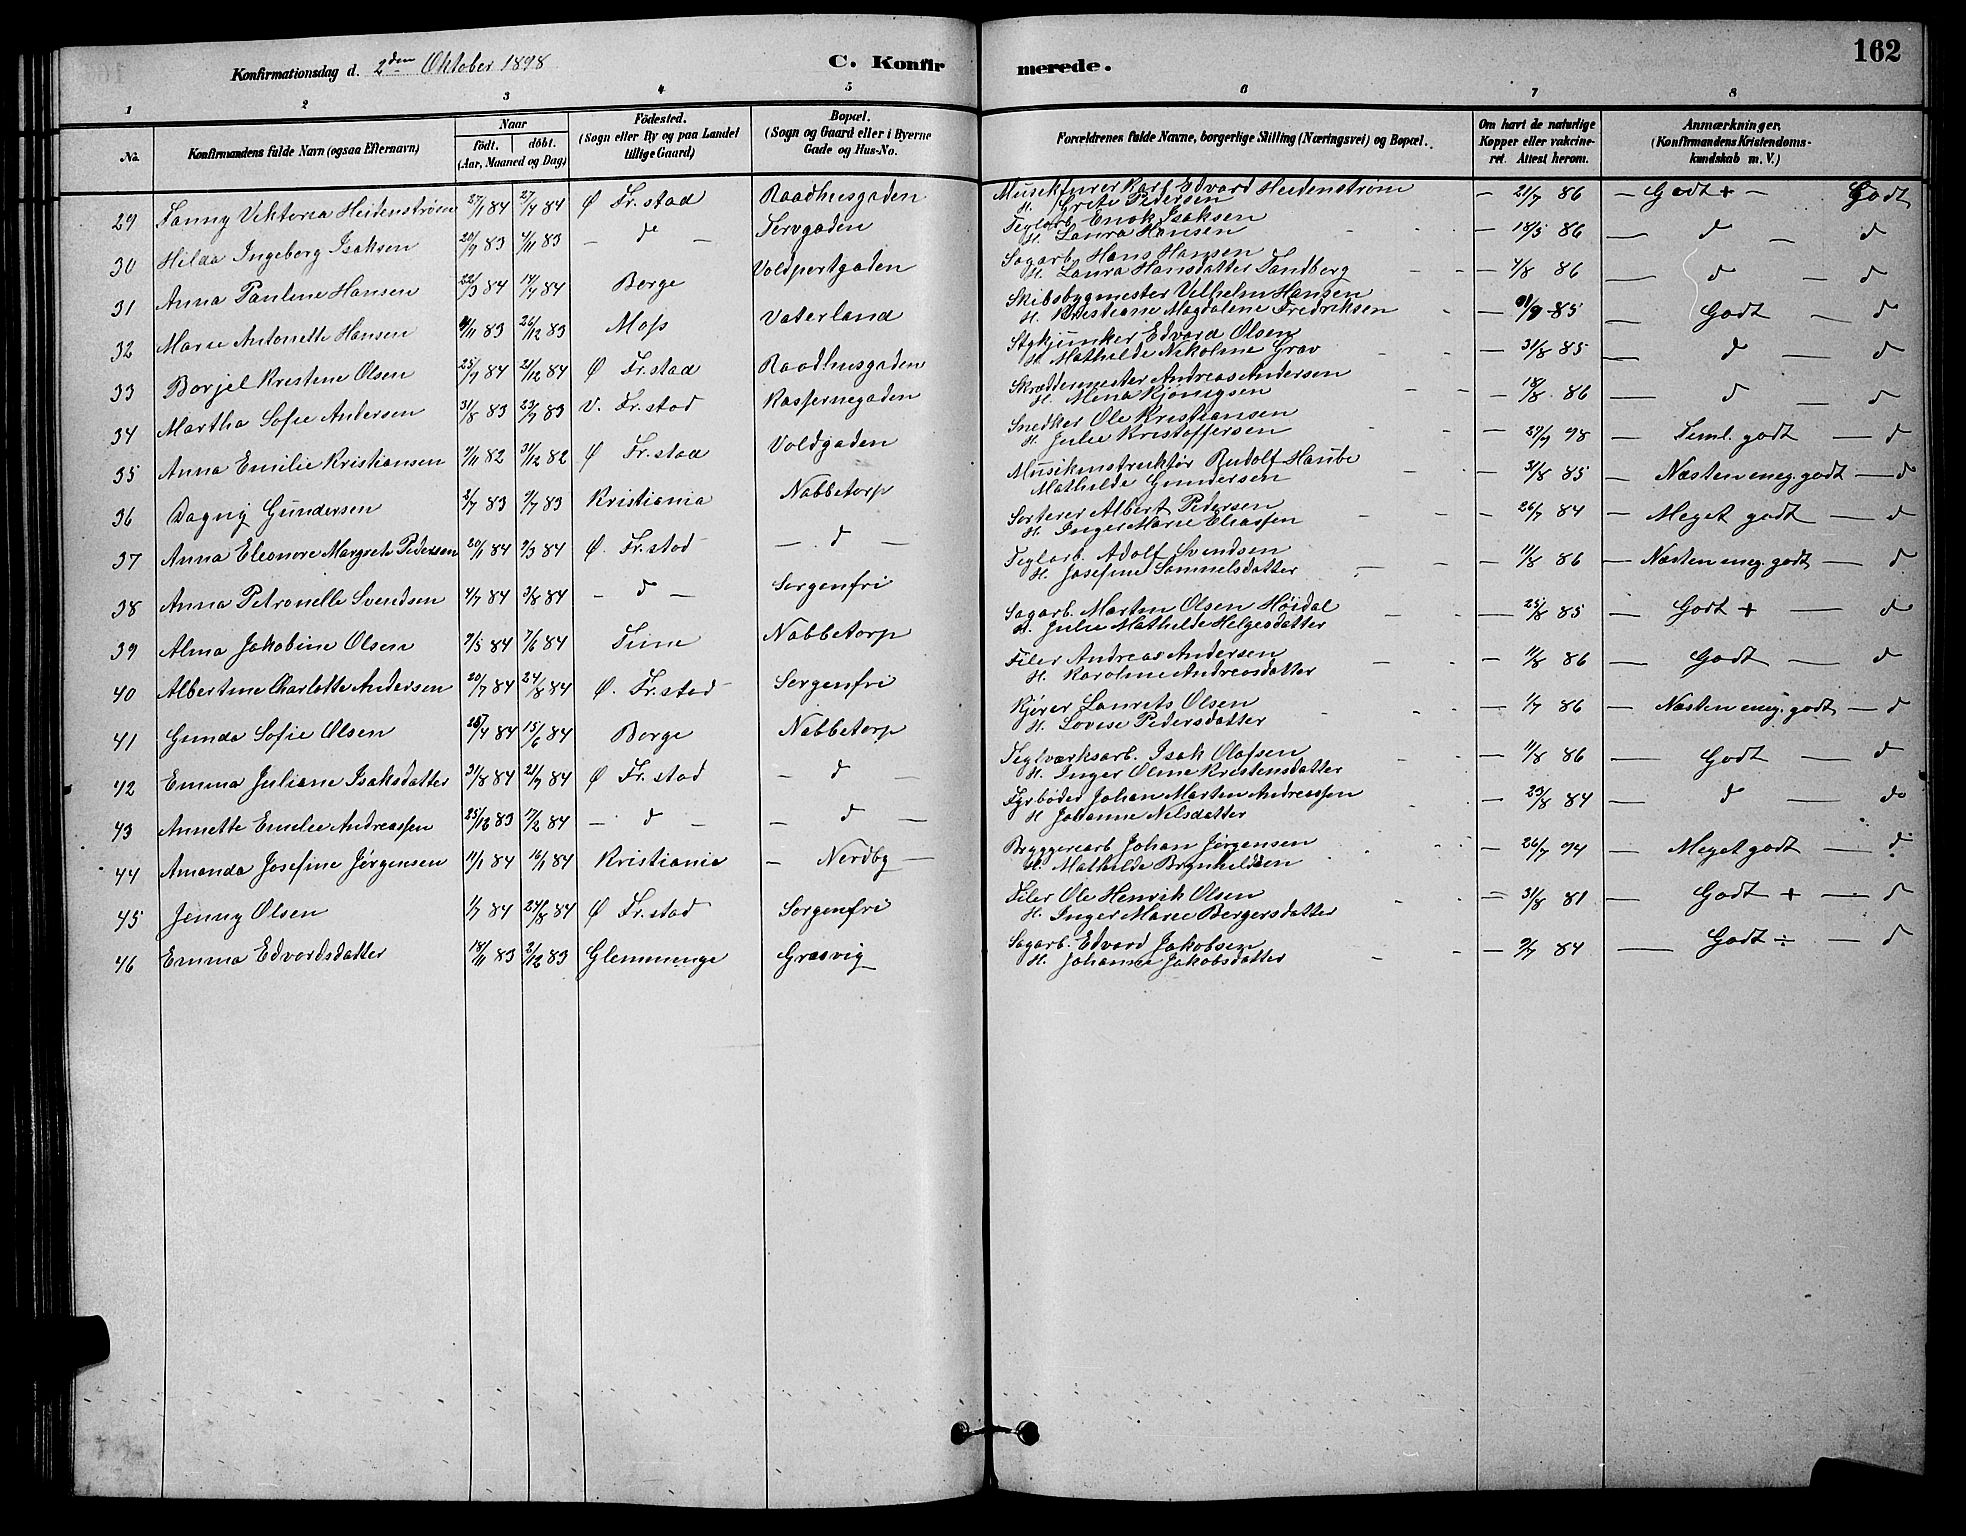 Konfirmationsdag d. 2den Oktober 1898
C. Konfir merede.
162
1 2 3 4 5 6 7 8
No.
Konfirmandens fulde Navn (ogsaa Efternavn)
Naar
födt. döbt.
(Aar, Maaned og Dag)
Födested.
(Sogn eller By og paa Landet
tillige Gaard)
Bopæl.
(Sogn og Gaard eller i Byerne
Gade og Hus-No.
Forældrenes fulde Navne, borgerlige Stilling (Næringsvei) og Bopæl.
Om havt de naturlige
Kopper eller vakcine-
ret. Attest herom.
Anmærkninger.
(Konfirmandens Kristendoms-
kundskab m. V.)
29 Fanny Viktoria Heidenstrøm 27/1 84 27/4 84 Ø Fr.stad Raadhusgaden Karl Edvard Heidenstrøm — 21/7 86 — Godt + — Godt
H. Grete Pedersen
30 Hilda Ingeborg Isaksen 20/9 83 4/11 83 — do — Torvgaden Teglarb. Enok Isaksen — 18/5 86 — d — d
H. Laura Hansen
31 Anna Pauline Hansen 22/3 84 14/4 84 Borge Voldportgaden Sagarb. Hans Hansen — 4/8 86 — d — d
H. Laura Hansdatter Tandberg
32 Marie Antonette Hansen /11 83 26/12 83 Moss Vaterland Skibsbygmester Vilhelm Hansen — /9 85 — Godt — d
H. Kristiane Magdalene Fredriksen
33 Borjel Kristine Olsen 25/9 84 21/12 84 Ø Fr.stad Raadhusgaden Stykjunker Edvard Olsen — 31/8 85 — d — d
H. Mathilde Nikoline Grav
34 Martha Sofie Andersen 31/8 83 23/9 83 V. Fr.stad Kasernegaden Skræddermester Andreas Andersen — 18/8 86 — d — d
H. Mina Kjönigsen
35 Anna Emilie Kristiansen 9/11 82 31/12 82 Ø Fr.stad Voldgaden Snedker Ole Kristiansen — 29/9 98 — Teml. godt — d
H. Julie Kristoffersen
36 Dagny Gundersen 2/7 83 9/7 83 Kristiania Nabbetorp Musikinstruktør Rudolf Haube — 31/8 85 — Næsten meg. godt — d
Mathilde Gundersen
37 Anna Eleonore Margrete Pedersen 20/1 84 9/3 84 Ø. Fr.stad — d — Sorterer Albert Pedersen — 26/7 84 — Meget godt — d
H. Inger Marie Eliassen
38 Anna Petronelle Svendsen 4/7 84 3/8 84 — d — Sorgenfri Teglarb. Adolf Svendsen — 11/8 86 — Næsten meg. godt — d
H. Josefine Samuelsdatter
39 Alma Jakobine Olsen 9/5 84 7/6 84 Tune Nabbetorp Sagarb. Martin Olsen Høidal — 25/8 85 — Godt + — d
H. Julie Mathilde Helgesdatter
40 Albertine Charlotte Andersen 20/7 84 24/8 84 Ø. Fr.stad Sorgenfri Filer Andreas Andersen — 11/8 86 — Godt — d
H. Karoline Andreasdatter
41 Gunda Sofie Olsen /4 84 15/6 84 Borge Nabbetorp Kjører Laurets Olsen — 1/7 86 — Næsten meg. godt — d
H. Lovise Pedersdatter
42 Emma Juliane Isaksdatter 31/8 84 21/9 84 Ø Fr.stad — d — Teglværksarb. Isak Olafsen — 11/8 86 — Godt — d
H. Inger Oline Kristensdatter
43 Annette Emilie Andreassen 25/12 83 17/2 84 — d — — d — Fyrbøder Johan Martin Andreassen — 23/8 84 — d — do
H. Johanne Nilsdatter
44 Amanda Josefine Jørgensen 11/1 84 16/1 84 Kristiania — Nordby — Bryggerearb Johan Jørgensen — 26/7 94 — Meget godt — d
H. Mathilde Brynhildsen
45 Jenny Olsen 1/7 84 24/8 84 Ø Fr.stad Sorgenfri Filer Ole Henrik Olsen — 31/8 81 — Godt + — d
H. Inger Marie Bergersdatter
46 Emma Edvardsdatter 18/11 83 2/12 83 Glemminge Græsvig Sagarb. Edvard Jakobsen — 9/7 84 — Godt ÷ — d
H. Johanne Jakobsdatter